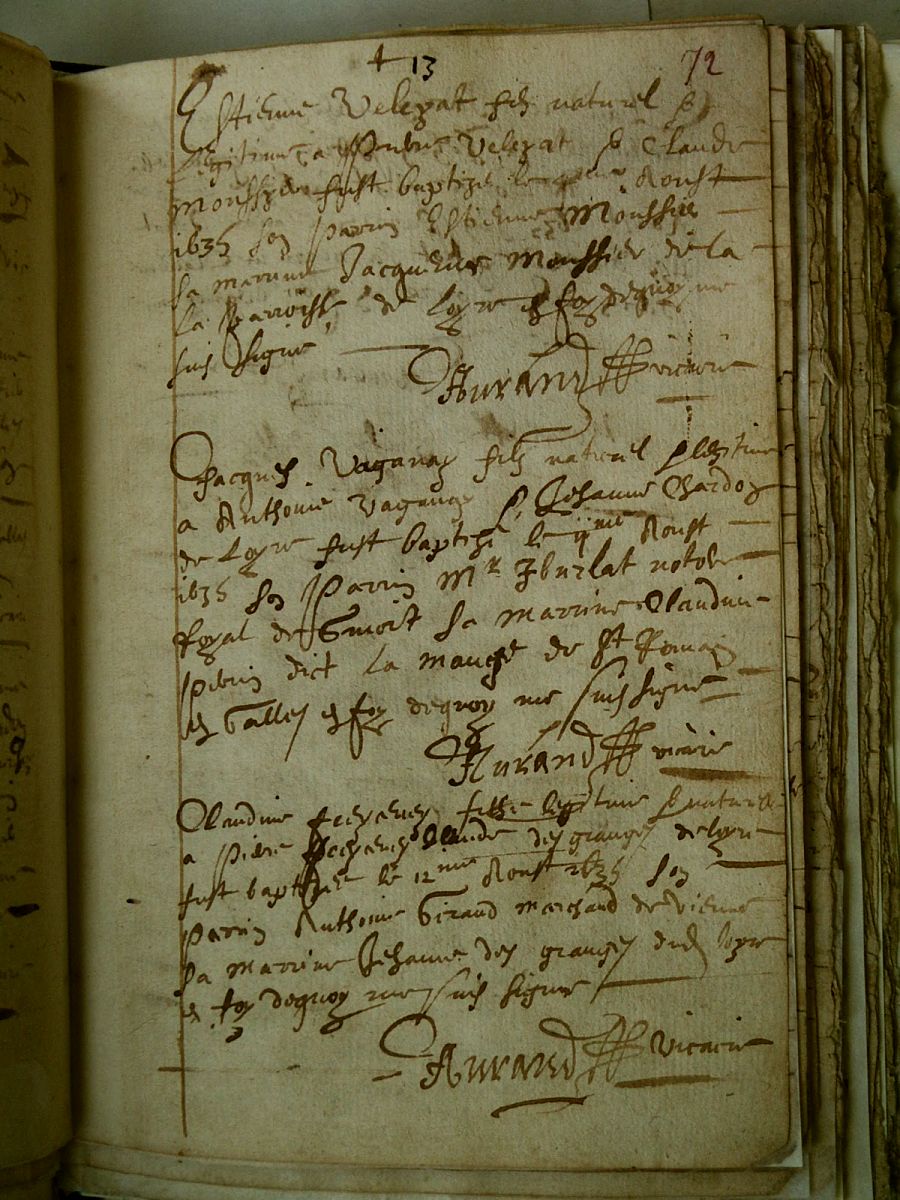 13
72
Estienne Velezat filz naturel &
legitime a Pierre Velezat & Claude
Monssier fust baptizé le Aoust
1635 son Parrin Estienne Monssier
sa marrine Jacqueme Monssier de la
la parroisse de Loyre en foy dequoy me
suis signé
Aurand vicaire
Jacques Vaganay filz naturel & legitime
a Anthoine Vaganay & Jehanne Chardoz
de Loyre fust baptizé le Aoust
1635 son Parrin Mr Jburlat notere
Royal de sa marrine Claudine
Perrin dict la mauge de St Romain
en Galles en foy dequoy me suis signé
Aurand vicaire
Claudine fille legitime & naturelle
a Pierre Claude des granges de Loyre
fust baptizée le 12me Aoust 1635 son
parrin Anthoine Giraud marchand de Vienne
sa marrine Jehanne des granges dud Loyre
en foy dequoy me suis signé
Aurand vicaire